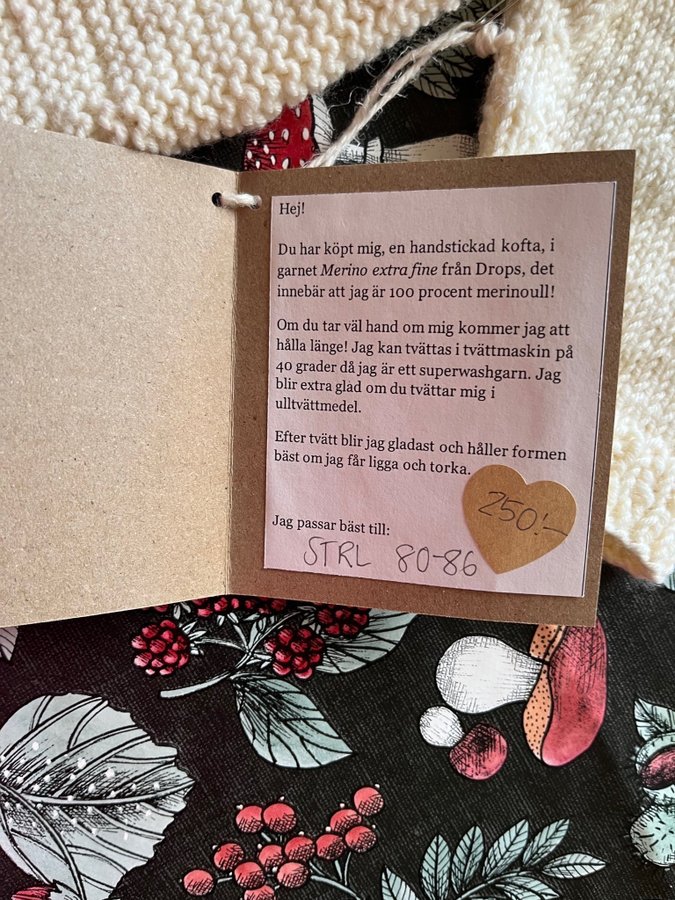 Hej!
Du har köpt mig, en handstickad kofta, i
garnet Merino extra fine från Drops, det
innebär att jag är 100 procent merinoull!
Om du tar väl hand om mig kommer jag att
hålla länge! Jag kan tvättas i tvättmaskin på
40 grader då jag är ett superwashgarn. Jag
blir extra glad om du tvättar mig i
ulltvättmedel.
Efter tvätt blir jag gladast och håller formen
bäst om jag får ligga och torka.
250:-
Jag passar bäst till:
STRL 80-86